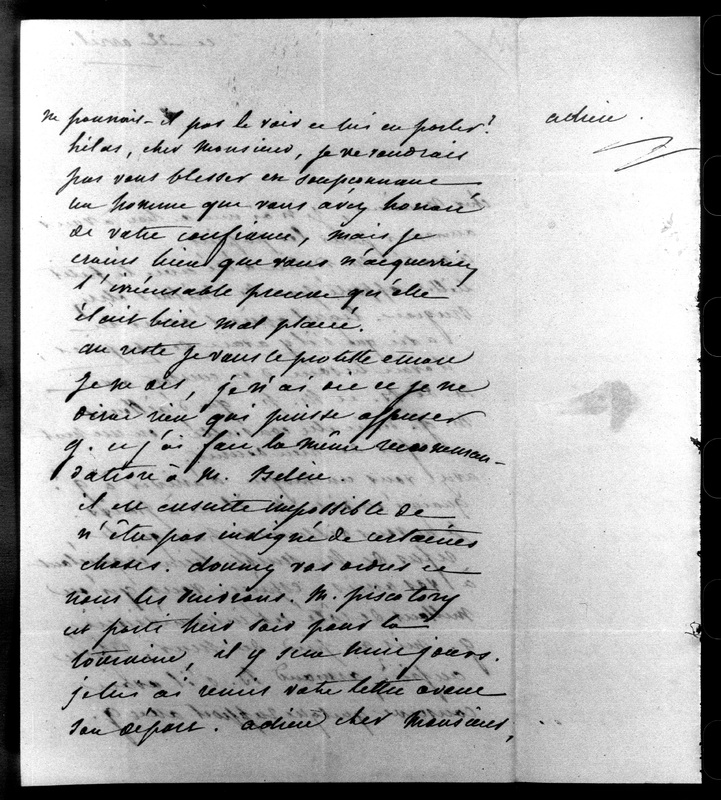 ne pourrais-il pas le voir et lui en parler?
hélas, cher Monsieur, je ne voudrais
pas vous blesser en soupçonnant
un homme que vous avéz honoré
de votre confiance, mais je
crains bien que vous n'acquerriez
l'irrécusable preuve qu'elle
était bien mal placée.
au reste je vous le proteste encore
je ne dis, je n'ai dit et je ne
dirai rien qui puisse
g. et j'ai fait la même recomman-
dation à M.
il est ensuite impossible de
n'être pas indigné de certaines
choses. donnez vos ordres et
nous les suivrons. M. piscatory
est parti hier soir pour la
touraine, il y sera huit jours.
je lui ai remis votre lettre avant
son départ. adieu cher Monsieur,
adieu.